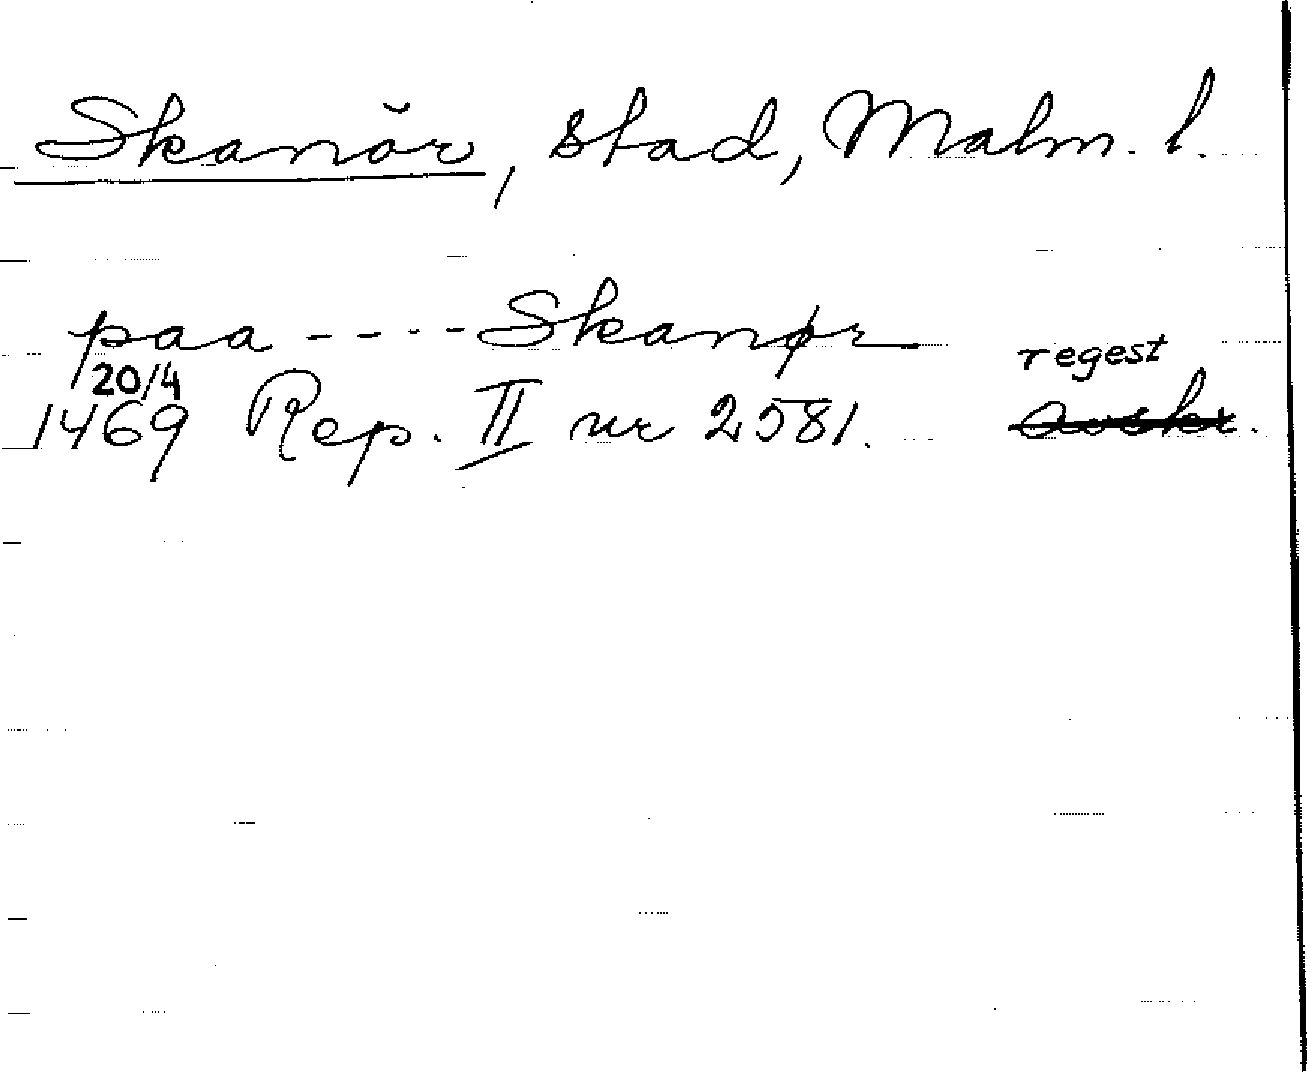 Skanör, stad, Malm. l.
paa - - - - Skanør
regest
20/4
1469 Rep. II nr 2581. avskr.